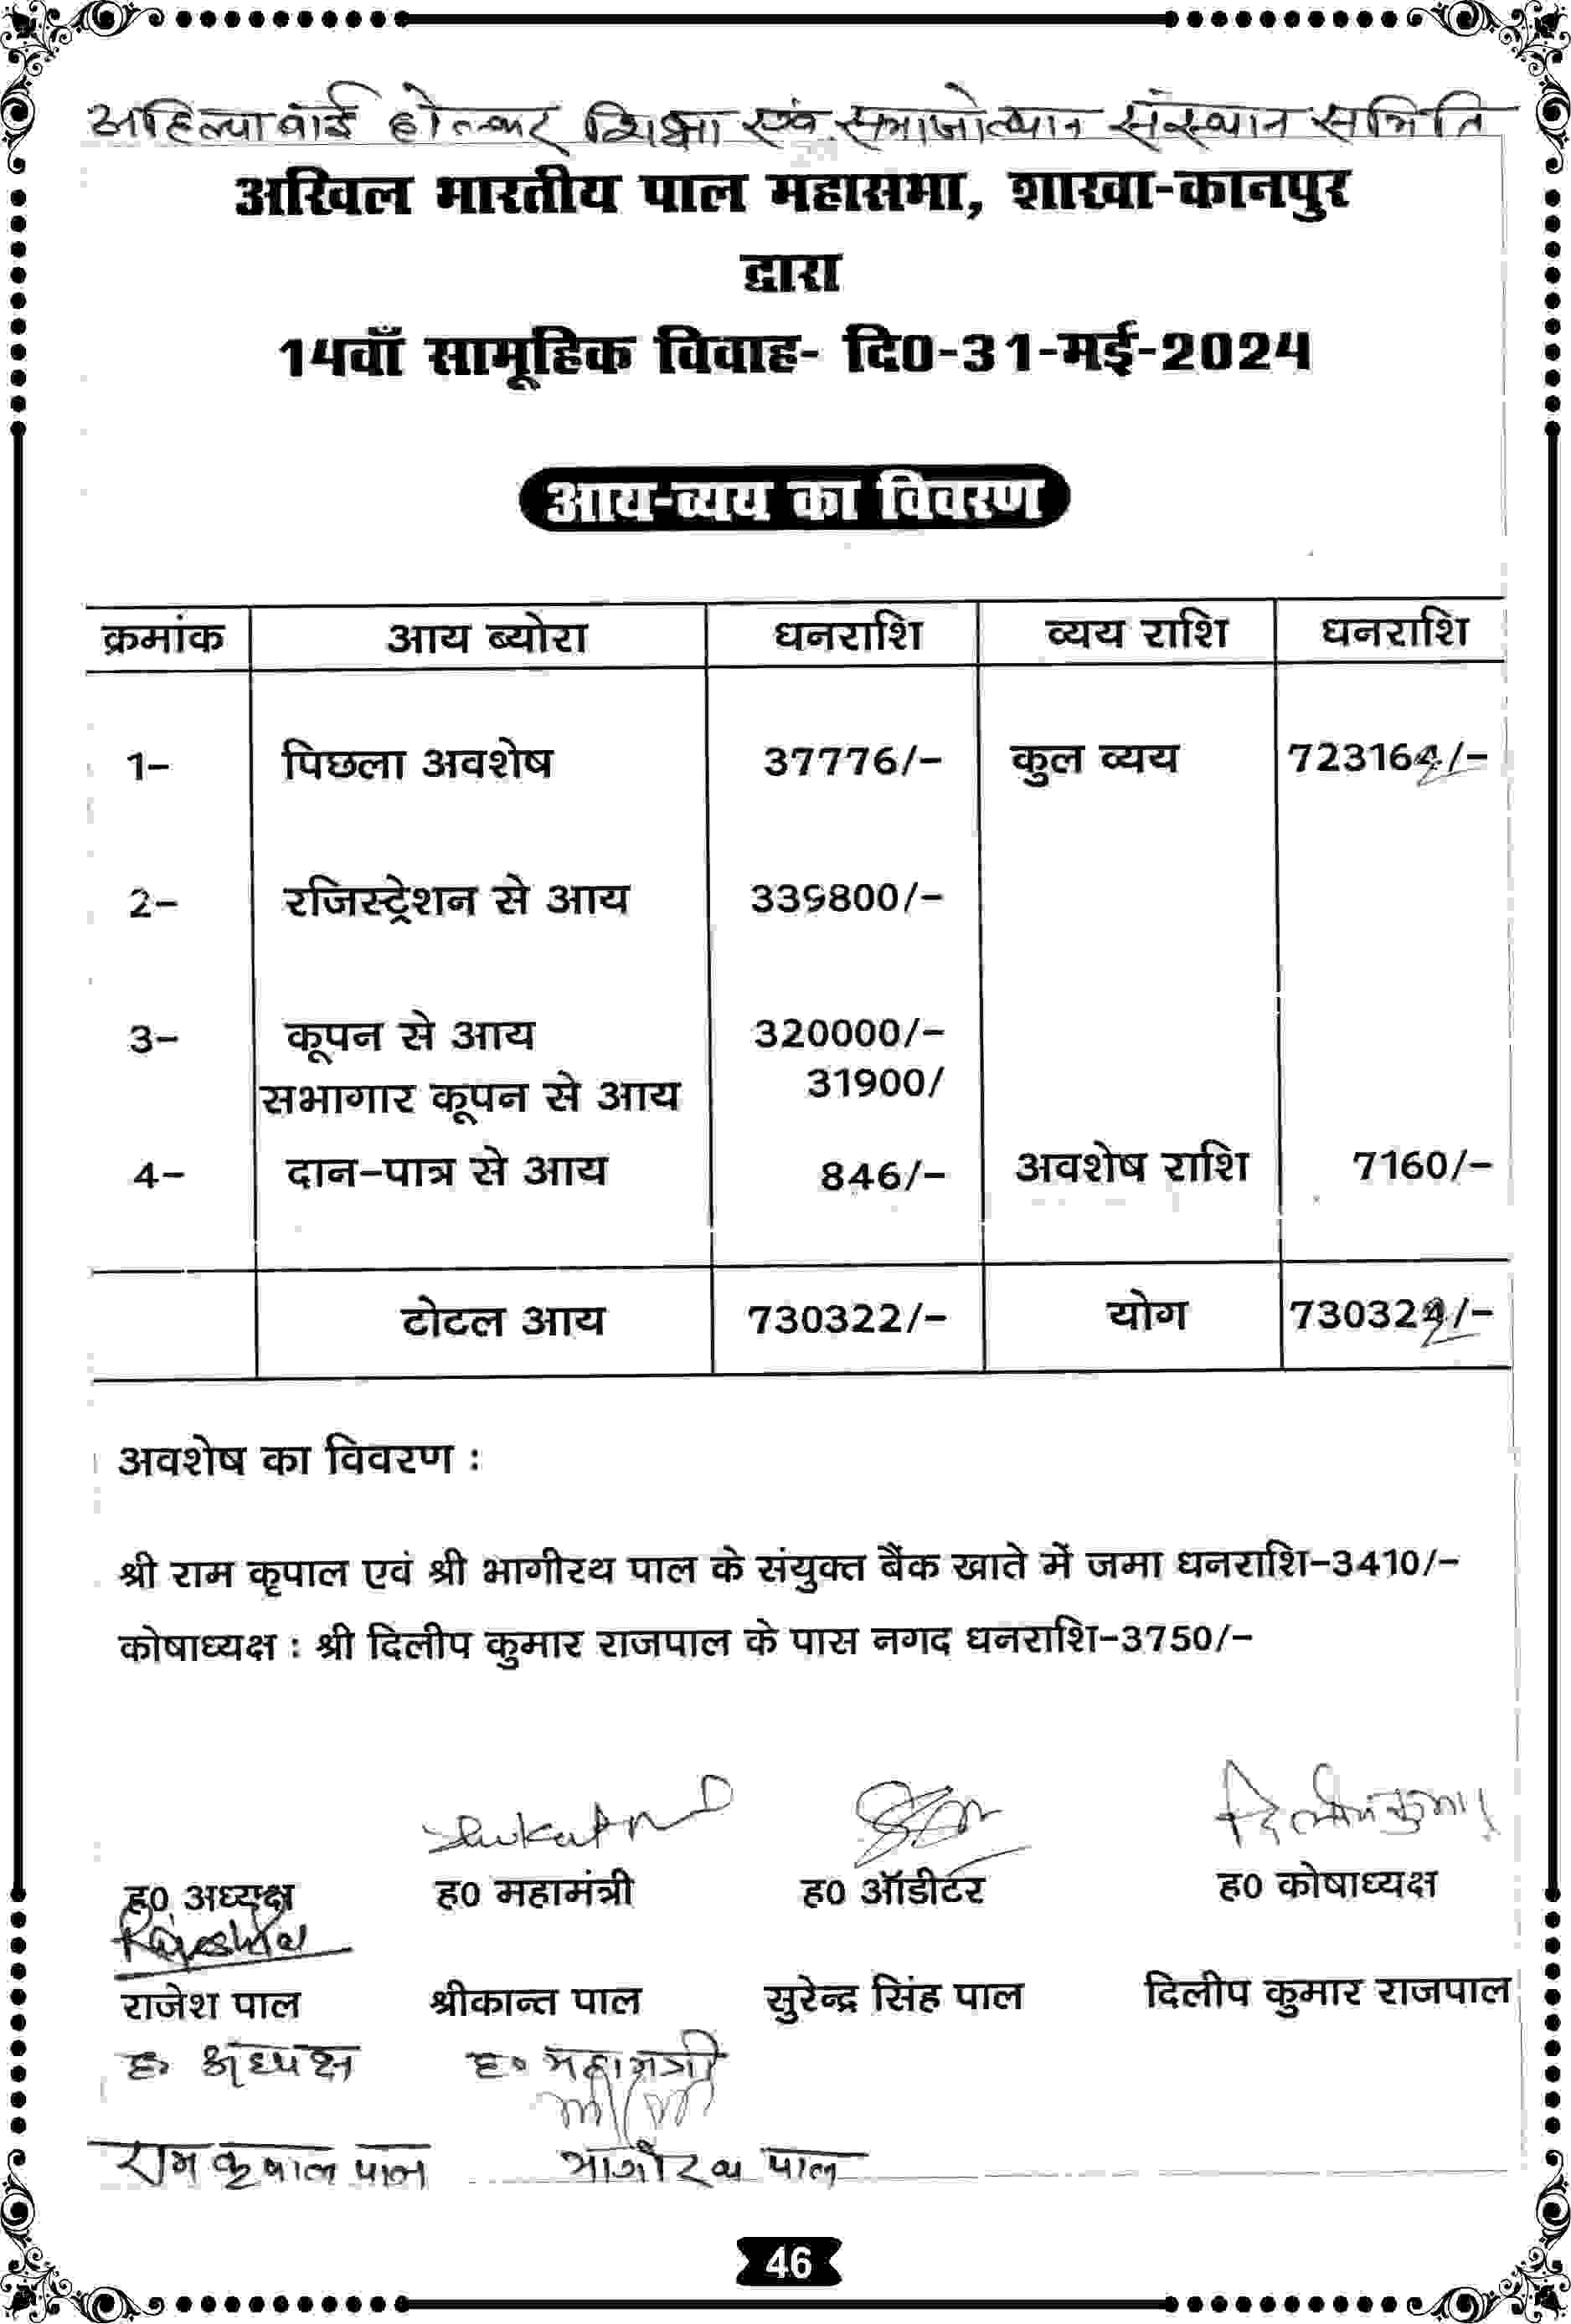 अहिल्याबाई होल्कर शिक्षा एवं समाजोत्थान संस्थान समिति
अखिल भारतीय पाल महासभा, शाखा-कानपुर
द्वारा
14वाँ सामूहिक विवाह- दि0-31-मई-2024
आय-व्यय का विवरण
क्रमांक आय ब्योरा धनराशि व्यय राशि धनराशि
1- पिछला अवशेष 37776/- कुल व्यय 723162/-
2- रजिस्ट्रेशन से आय 339800/-
3- कूपन से आय 320000/-
सभागार कूपन से आय 31900/
4- दान-पात्र से आय 846/- अवशेष राशि 7160/-
टोटल आय 730322/- योग 730322/-
अवशेष का विवरण :
श्री राम कृपाल एवं श्री भागीरथ पाल के संयुक्त बैंक खाते में जमा धनराशि-3410/-
कोषाध्यक्ष : श्री दिलीप कुमार राजपाल के पास नगद धनराशि-3750/-
दिलीप कुमार
ह0 अध्यक्ष ह0 महामंत्री ह0 ऑडीटर ह0 कोषाध्यक्ष
राजेश पाल श्रीकान्त पाल सुरेन्द्र सिंह पाल दिलीप कुमार राजपाल
ह० अध्यक्ष ह० महामंत्री
राम कृपाल पाल भागीरथ पाल
46